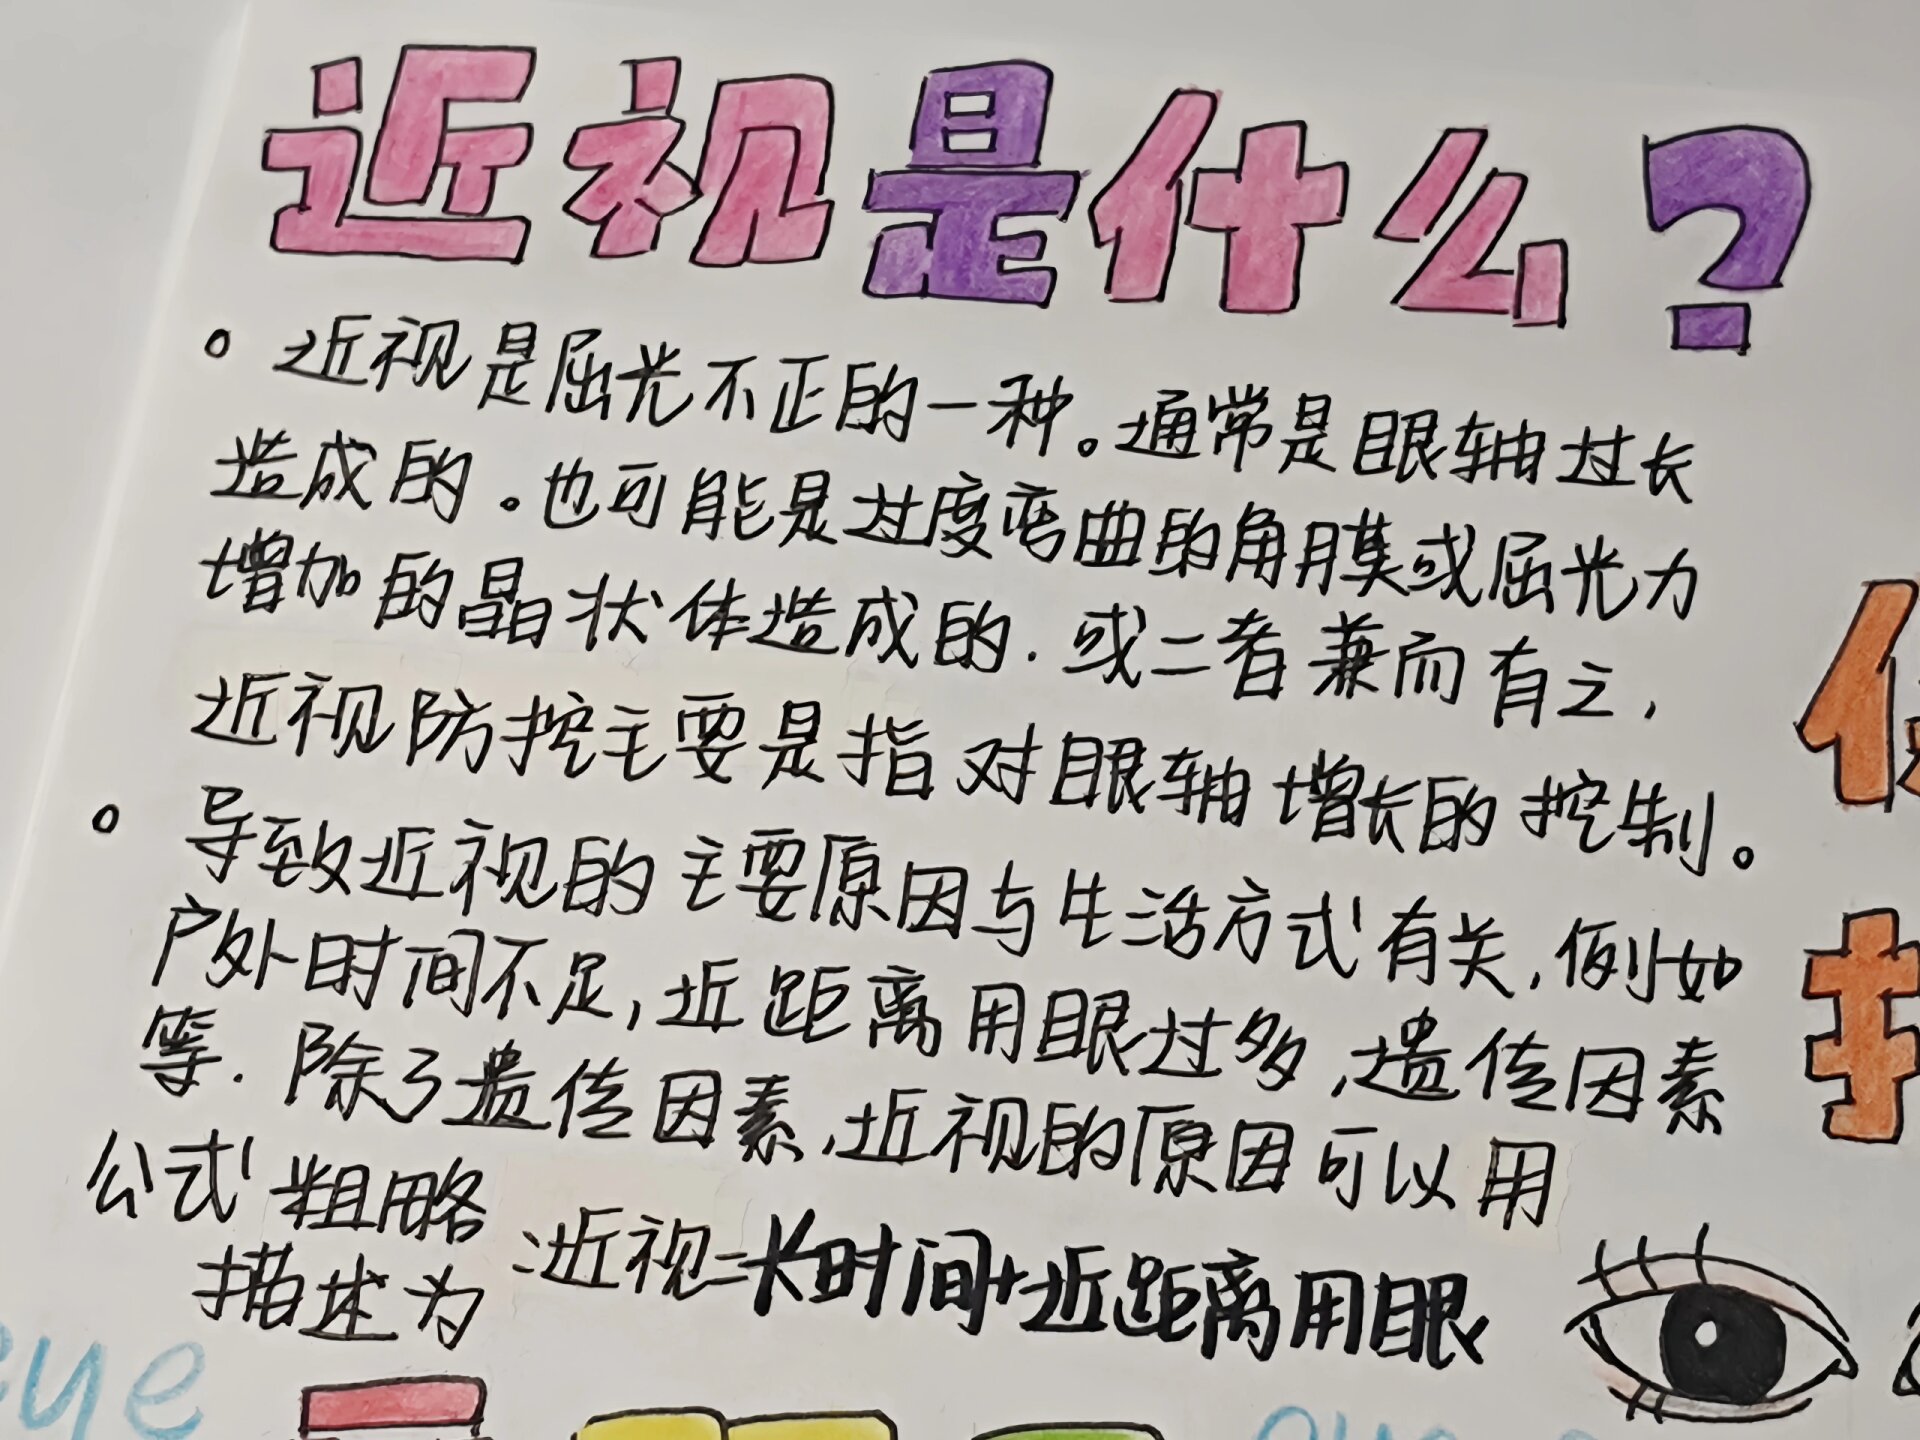 近视是什么?
。近视是屈光不正的一种。通常是眼轴过长
造成的。也可能是过度弯曲的角膜或屈光力
增加的晶状体造成的.或二者兼而有之,
近视防控主要是指对眼轴增长的控制。
。导致近视的主要原因与生活方式有关,例如
户外时间不足,近距离用眼过多,遗传因素
等.除了遗传因素,近视的原因可以用
公式粗略
描述为:近视=长时间+近距离用眼
eye